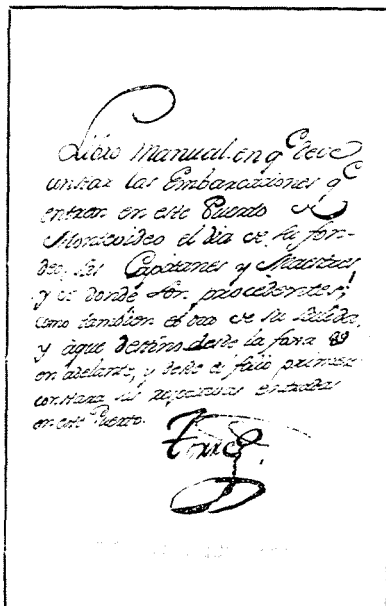 Libro Manual en q.e deve
constar las Embarcaziones q.e
entran en este Puerto de
Montevideo el dia de su fon-
deo, sus Capitanes y Maestres
y de donde son procedentes;
como tambien el dia de su salida,
y aque destino desde la foxa 89
en adelante, y desde el folio primero
constara sus respectivas entradas
en este Puerto.
Torre